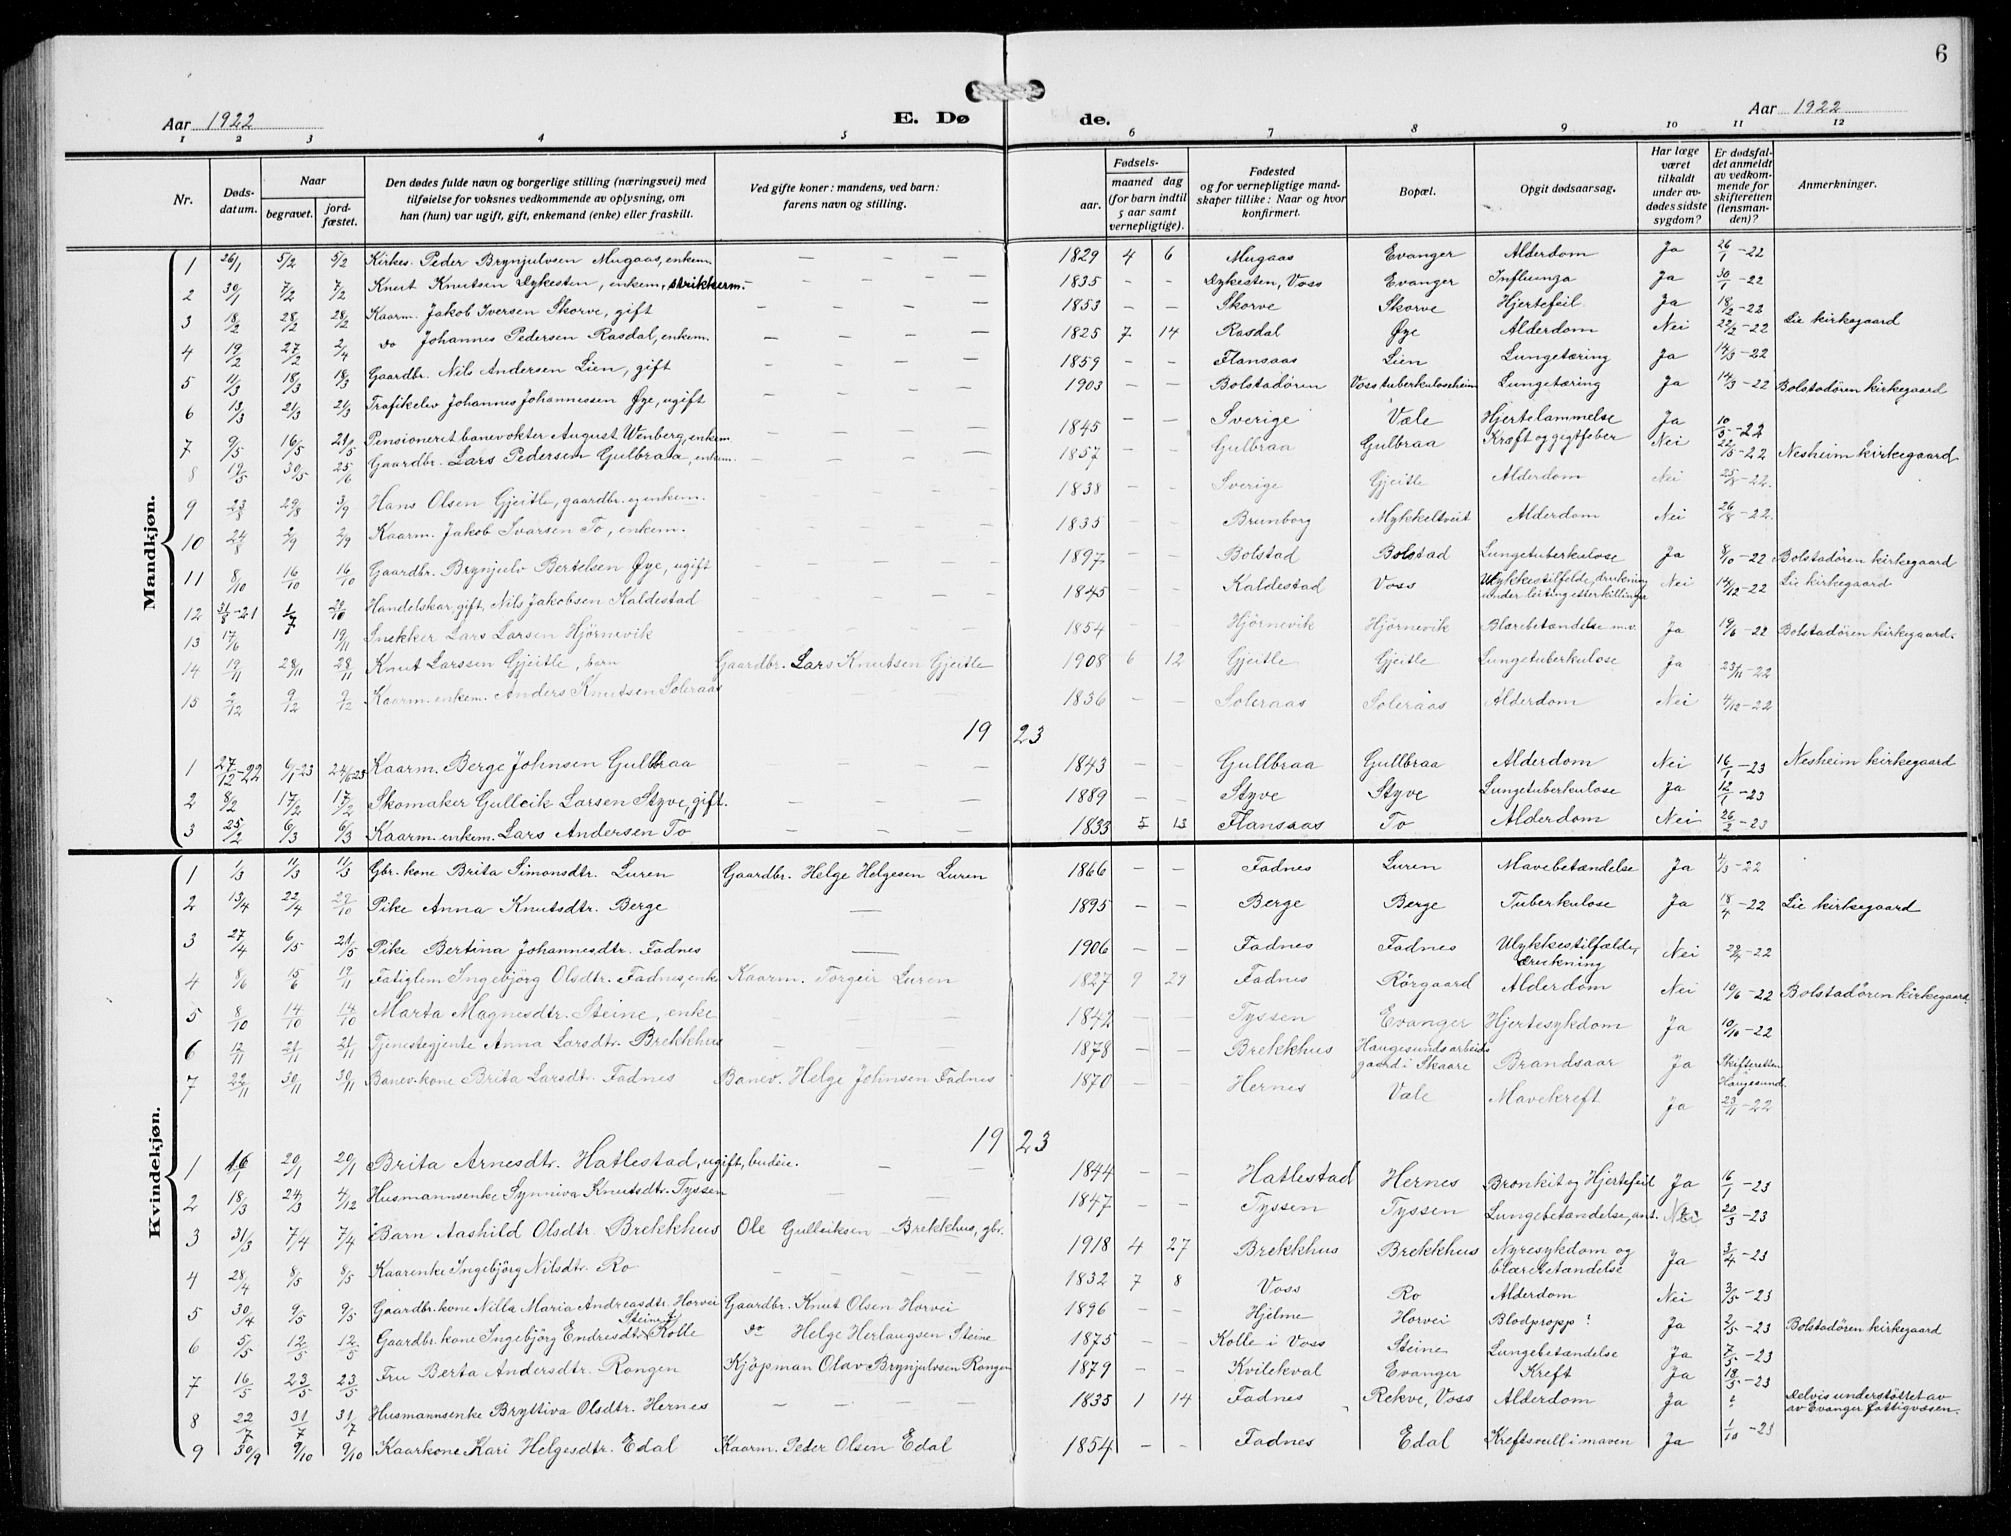 6
Aar 1922
E. Dø
de.
Aar 1922
1 2 3 4 5 6 7 8 9 10 11 12
Nr.
Døds-datum.
Naar
begravet.
jord-fæstet.
Den dødes fulde navn og borgerlige stilling (næringsvei) med
tilføielse for voksnes vedkommende av oplysning, om
han (hun) var ugift, gift, enkemand (enke) eller fraskilt.
Ved gifte koner: mandens, ved barn:
farens navn og stilling.
Fødsels-
aar.
maaned dag
(for barn indtil
5 aar samt
vernepligtige).
Fødested
og for vernepligtige mand-
skaper tillike: Naar og hvor
konfirmert.
Bopæl.
Opgit dødsaarsag.
Har læge
været
tilkaldt
under av-
dødes sidste
sygdom?
Er dødsfal-
det anmeldt
av vedkom-
mende for
skifteretten
(lensman-
den)?
Anmerkninger.
Mandkjøn.
1 26/1 5/2 5/2 Kirkes. Peder Brynjulvsen Mugaas, enkem. — — — 1829 4 6 Mugaas Evanger Alderdom Ja 26/1-22
2 30/1 7/2 7/2 Knut Knutsen Dykesten, enkem, strikkerm. — — — 1835 - - Dykesten, Voss Evanger Influenza Ja 30/1-22
3 18/2 28/2 28/2 Kaarm. Jakob Iversen Skorve, gift — — — 1853 - - Skorve Skorve Hjertefeil Ja 18/2-22
4 19/2 27/2 2/4 do Johannes Pedersen Rasdal, enkem. — — — 1825 7 14 Rasdal Øye Alderdom Nei 22/2-22 Lie kirkegaard
5 11/3 18/3 18/3 Gaardbr. Nils Andersen Lien, gift — — — 1859 - - Flansaas Lien Lungetæring Ja 14/3-22
6 13/3 21/3 21/3 Trafikelev Johannes Johannessen Øye, ugift — — — 1903 - - Bolstadøren Voss tuberkuloseheim Lungetæring Ja 14/3-22 Bolstadøren kirkegaard
7 9/5 16/5 21/5 Pensioneret banevokter August Wenberg, enkem — — — 1845 - - Sverige Væle Hjertelammelse Ja 10/5-22
8 19/5 30/5 25/6 Gaardbr. Lars Pedersen Gulbraa, enkem. — — — 1857 - - Gulbraa Gulbraa Kræft og gigtfeber Nei 22/5-22 Nesheim kirkegaard
9 23/8 29/8 3/9 Hans Olsen Gjeitle, gaardbr. og enkem. — — — 1838 - - Sverige Gjeitle Alderdom Nei 25/8-22.
10 24/8 2/9 2/9 Kaarm. Jakob Ivarsen To, enkem. — — — 1835 - - Brunborg Mykkeltveit Alderdom Nei 26/8-22.
11 8/10 16/10 16/10 Gaardbr. Brynjulv Bertelsen Øye, ugift — — — 1897 - - Bolstad Bolstad Lungetuberkulose Ja 8/10-22 Bolstadøren kirkegaard
12 31/8-21 1/7 29/10 Handelskar, gift, Nils Jakobsen Kaldestad — — — 1845 - - Kaldestad Voss Ulykkestilfelde, drukning under leiting etter killinger Nei 14/12-22 Lie kirkegaard
13 17/6 19/11 Snekker Lars Larsen Hjørnevik — — — 1854 - - Hjørnevik Hjørnevik Blærebetændelse m.v. Ja 19/6-22 Bolstadøren kirkegaard.
14 19/11 28/11 28/11 Knut Larssen Gjeitle, barn Gaardbr. Lars Knutsen Gjeitle 1908 6 12 Gjeitle Gjeitle Lungetuberkulose Ja 23/11-22
15 2/12 9/12 9/12 Kaarm. enkem. Anders Knutsen Soleraas — — — 1836 - - Soleraas Soleraas Alderdom Nei 4/12-22
19 23
1 27/12-22 6/1-23 24/6-23 Kaarm. Berge Johnsen Gullbraa — — — 1843 - - Gullbraa Gullbraa Alderdom Nei 16/1-23 Nesheim kirkegaard
2 8/2 17/2 17/2 Skomaker Gulleik Larsen Styve, gift. — — — 1889 - - Styve Styve Lungetuberkulose Ja 12/1-23
3 25/2 6/3 6/3 Kaarm. enkem. Lars Andersen To — — — 1833 5 13 Flansaas To Alderdom Nei 26/2-23
Kvindekjøn.
1 1/3 11/3 11/3 Gbr. kone Brita Simonsdtr. Luren Gaardbr. Helge Helgesen Luren 1866 - - Fadnes Luren Mavebetændelse Ja 4/3-22
2 13/4 22/4 29/10 Pike Anna Knutsdtr. Berge — 1895 - - Berge Berge Tuberkulose Ja 18/4-22 Lie kirkegaard
3 27/4 6/5 21/5 Pike Bertina Johannesdtr. Fadnes — 1906 - - Fadnes Fadnes Ulykkestilfælde, drukning Nei 29/4-22
4 8/6 15/6 19/11 Fatiglem Ingebjörg Olsdtr. Fadnes, enke Kaarm. Torgeir Luren 1827 9 29 Fadnes Rörgaard Alderdom Nei 10/6-22 Bolstadøren kirkegaard.
5 8/10 14/10 14/10 Marta Magnesdtr. Steine, enke — — — 1842 - - Tyssen Evanger Hjertesykdom Ja 10/10-22
6 12/11 21/11 21/11 Tjenestegjente Anna Larsdtr. Brekkhus — — — 1878 - - Brekkhus Haugesunds arbeids gaard i Skaare Brandsaar Ja Skifteretten Haugesund.
7 22/11 30/11 30/11 Banev. kone Brita Larsdtr. Fadnes Banev. Helge Johnsen Fadnes 1870 - - Hernes Væle Mavekreft Ja 23/11-22
19 23
1 16/1 20/1 20/1 Brita Arnesdtr. Hatlestad, ugift, budeie. — — 1844 - - Hatlestad Hernes Bronkit og Hjertefeil Ja 16/1-23
2 18/3 24/3 4/12 Husmannsenke Synniva Knutsdtr. Tyssen — — — 1847 - - Tyssen Tyssen Lungebetændelse, ant. Nei 20/3-23
3 31/3 7/4 7/4 Barn Aashild Olsdtr Brekkhus Ole Gulleiksen Brekkhus, gbr. 1918 4 27 Brekkhus Brekkhus Nyresykdom og blærebetændelse Ja 3/4-23
4 28/4 8/5 8/5 Kaarenke Ingebjörg Nilsdtr. Ro — — — 1832 7 8 Voss Ro Alderdom Nei 3/5-23
5 30/4 9/5 9/5 Gaardbr. kone Nilla Maria Andreasdtr. Horvei Gaardbr. Knut Olsen Horvei 1896 - - Hjelme Horvei Blodpropp? Ja 2/5-23 Bolstadören kirkegaard
6 5/5 12/5 12/5 Gaardbr. kone Ingebjörg Endresdtr. Steine f. Kolle do Helge Herlaugsen Steine 1875 - - Kolle i Voss Steine Lungebetændelse Ja 7/5-23
7 16/5 23/5 23/5 Fru Berta Andersdtr. Rongen Kjöpman Olav Brynjulvsen Rongen 1879 - - Kvilekval Evanger Kreft Ja 18/5-23
8 22/7 31/7 31/7 Husmannsenke Bryttiva Olsdtr. Hernes — — — 1835 1 14 Fadnes Rekve, Voss Alderdom Ja ? Delvis understöttet av av Evanger fattigvæsen.
9 30/9 9/10 9/10 Kaarkone Kari Helgesdtr. Edal Kaarm. Peder Olsen Edal 1854 - - Fadnes Edal Kreftsvull i maven Ja 1/10-23